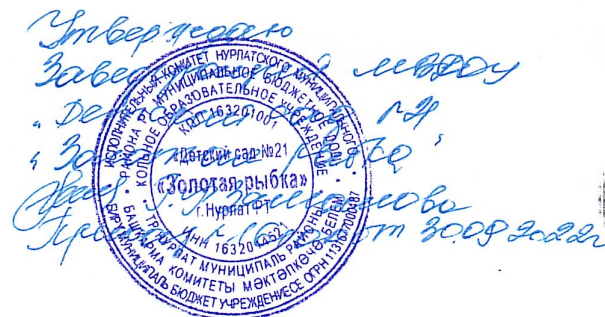 Утверждаю
Заведующий МБДОУ
"Детский сад №21
"Золотая рыбка"
Приказ от 30.09 2022г
ИСПОЛНИТЕЛЬНЫЙ КОМИТЕТ НУРЛАТСКОГО МУНИЦИПАЛЬНОГО
РАЙОНА РТ МУНИЦИПАЛЬНОЕ БЮДЖЕТНОЕ ДОШ
КОЛЬНОЕ ОБРАЗОВАТЕЛЬНОЕ УЧРЕЖДЕНИЕ
КПП 163201001
«Детский сад №21
«Золотая рыбка»
г.Нурлат РТ
ИНН
ТР НУРЛАТ МУНИЦИПАЛЬ РАЙОНЫ
БАШКАРМА КОМИТЕТЫ МӘКТӘПКӘЧӘ БЕЛЕМ
БИРҮ МУНИЦИПАЛЬ БЮДЖЕТ УЧРЕЖДЕНИЕСЕ ОГРН